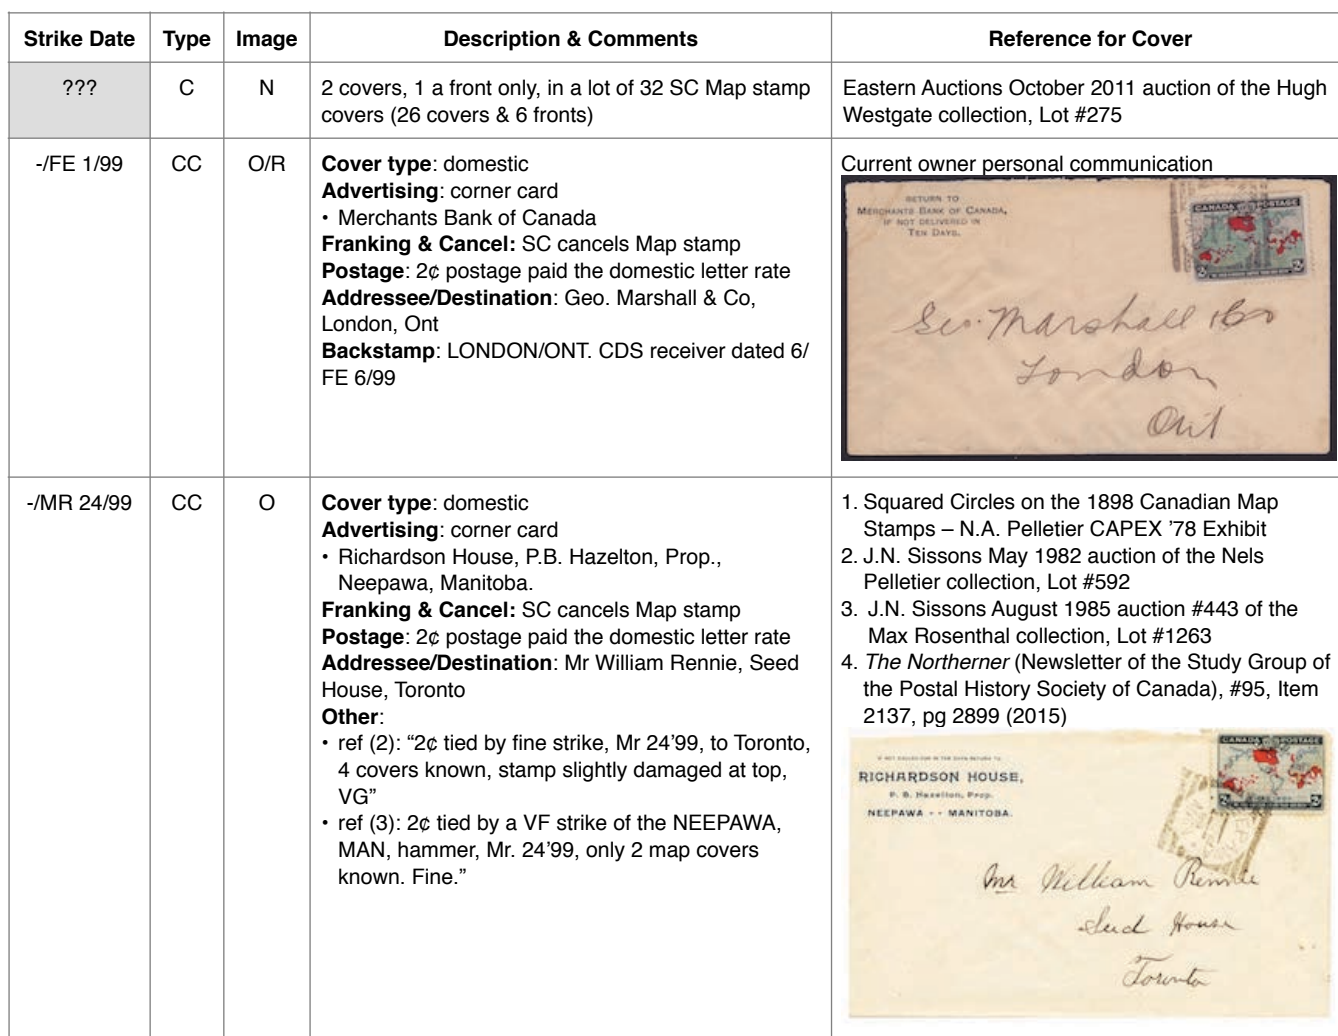 Strike Date Type Image Description & Comments Reference for Cover
??? C N 2 covers, 1 a front only, in a lot of 32 SC Map stamp
covers (26 covers & 6 fronts)
Eastern Auctions October 2011 auction of the Hugh
Westgate collection, Lot #275
-/FE 1/99 CC O/R Cover type: domestic
Advertising: corner card
• Merchants Bank of Canada
Franking & Cancel: SC cancels Map stamp
Postage: 2¢ postage paid the domestic letter rate
Addressee/Destination: Geo. Marshall & Co,
London, Ont
Backstamp: LONDON/ONT. CDS receiver dated 6/
FE 6/99
Current owner personal communication
RETURN TO
MERCHANTS BANK OF CANADA,
IF NOT DELIVERED IN
TEN DAYS.
CANADA POSTAGE
Geo. Marshall & Co
London
Ont
-/MR 24/99 CC O Cover type: domestic
Advertising: corner card
• Richardson House, P.B. Hazelton, Prop.,
Neepawa, Manitoba.
Franking & Cancel: SC cancels Map stamp
Postage: 2¢ postage paid the domestic letter rate
Addressee/Destination: Mr William Rennie, Seed
House, Toronto
Other:
• ref (2): “2¢ tied by fine strike, Mr 24’99, to Toronto,
4 covers known, stamp slightly damaged at top,
VG”
• ref (3): 2¢ tied by a VF strike of the NEEPAWA,
MAN, hammer, Mr. 24’99, only 2 map covers
known. Fine.”
1. Squared Circles on the 1898 Canadian Map
Stamps – N.A. Pelletier CAPEX ’78 Exhibit
2. J.N. Sissons May 1982 auction of the Nels
Pelletier collection, Lot #592
3. J.N. Sissons August 1985 auction #443 of the
Max Rosenthal collection, Lot #1263
4. The Northerner (Newsletter of the Study Group of
the Postal History Society of Canada), #95, Item
2137, pg 2899 (2015)
RICHARDSON HOUSE,
P. B. Hazelton, Prop.
NEEPAWA - - MANITOBA.
CANADA POSTAGE
Mr William Rennie
Seed House
Toronto